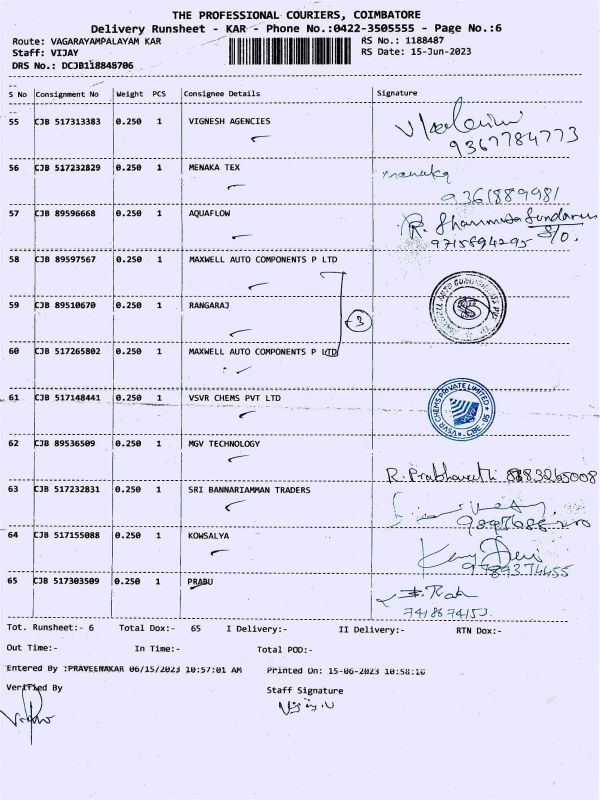 THE PROFESSIONAL COURIERS, COIMBATORE
Delivery Runsheet - KAR - Phone No.:0422-3505555 - Page No.:6
Route: VAGARAYAMPALAYAM KAR RS No.: 1188487
Staff: VIJAY RS Date: 15-Jun-2023
DRS No.: DCJB118848706
S No Consignment No Weight PCS Consignee Details Signature
55 CJB 517313383 0.250 1 VIGNESH AGENCIES
9367784773
56 CJB 517232829 0.250 1 MENAKA TEX menaka
9361889981
57 CJB 89596668 0.250 1 AQUAFLOW R. Shanmuga Sundaram
9715694295 S/O.
58 CJB 89597567 0.250 1 MAXWELL AUTO COMPONENTS P LTD
59 CJB 89510670 0.250 1 RANGARAJ 3
60 CJB 517265802 0.250 1 MAXWELL AUTO COMPONENTS P LTD
61 CJB 517148441 0.250 1 VSVR CHEMS PVT LTD VSVR CHEMS PRIVATE LIMITED CBE-05
62 CJB 89536509 0.250 1 MGV TECHNOLOGY
R. Prabhavathi
63 CJB 517232831 0.250 1 SRI BANNARIAMMAN TRADERS
64 CJB 517155088 0.250 1 KOWSALYA
9789374455
65 CJB 517303509 0.250 1 PRABU
Tot. Runsheet:- 6 Total Dox:- 65 I Delivery:- II Delivery:- RTN Dox:-
Out Time:- In Time:- Total POD:-
Entered By :PRAVEENAKAR 06/15/2023 10:57:01 AM Printed On: 15-06-2023 10:58:10
Verified By Staff Signature